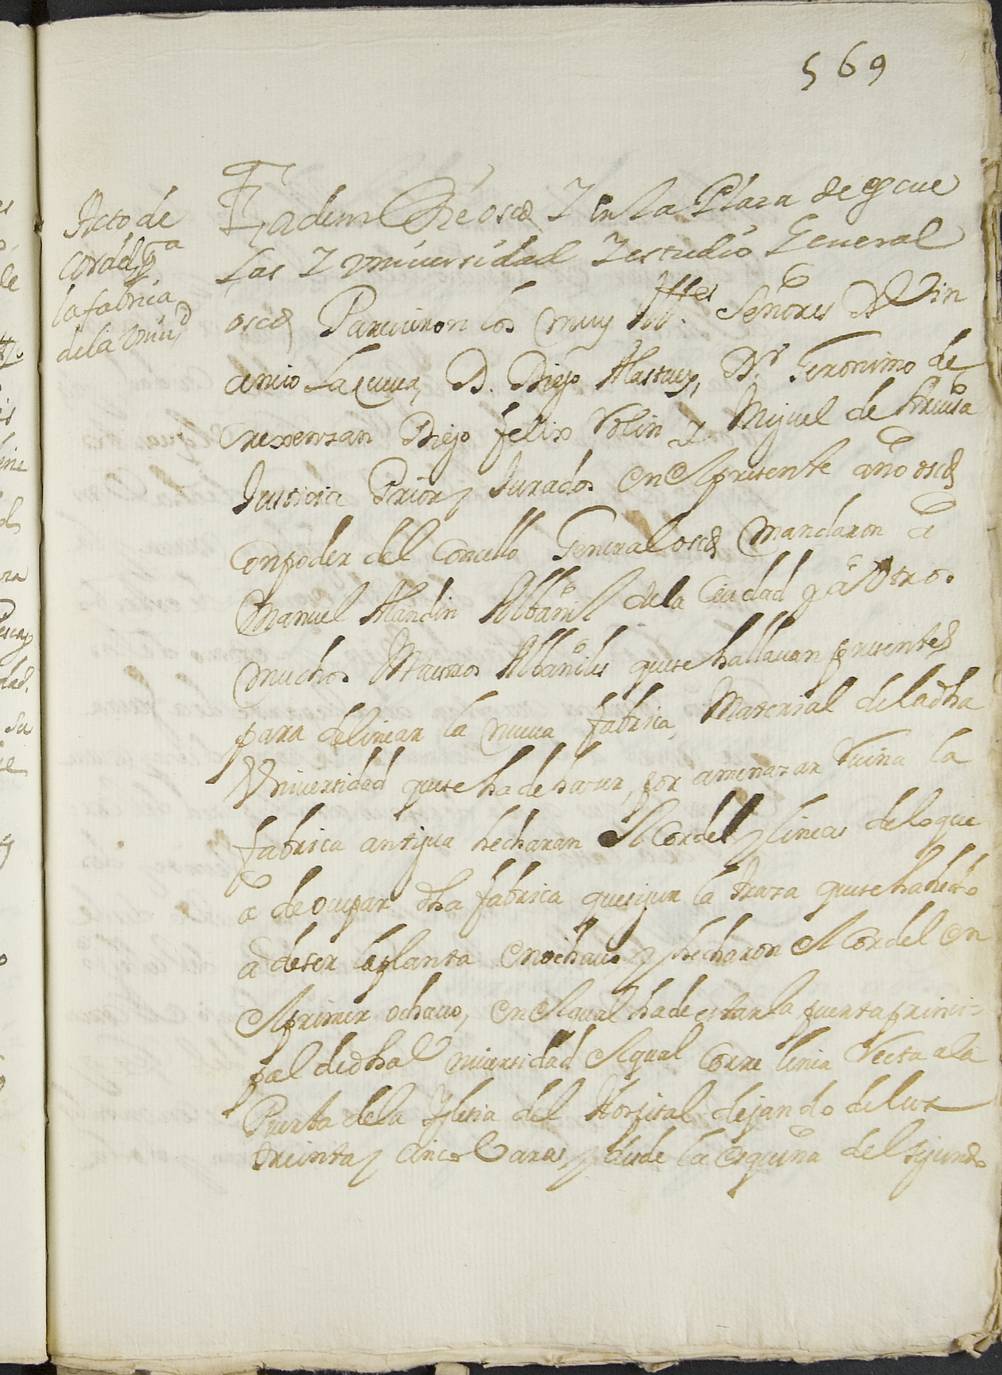 569
Acto de
la fabrica
de la Univ.d
Eadem Die osce Y en la Plaza de escue
las Y Universidad Y estudio General
osce Parecieron los muy Ill.es Señores D. Vin
cencio Lacueva, D. Diego Mastuez, D.r Geronimo de
Diego felix Volin y Miguel de
Justicia Prior y Jurados en el presente año osce
con poder del Concello General osce Mandaron a
Manuel Albañil de la Ciudad y a Otros
muchos Maestros Albañiles que se hallavan presentes
para delinear la nueva fabrica Material de la dha
Universidad que se ha de hazer, por amenazar Ruina la
fabrica antigua hecharan el Cordel y lineas de lo que
a de ocupar dha fabrica que sigun la traza que se ha hecho
a de ser la planta en ochavo y hecharon el Cordel en
el primer ochavo, en el qual ha de estar la puerta princi-
pal de dha Universidad el qual corre linea Recta a la
Puerta de la Yglesia del Hospital dejando de luze
treinta y cinco Varas y desde la esquina del segundo